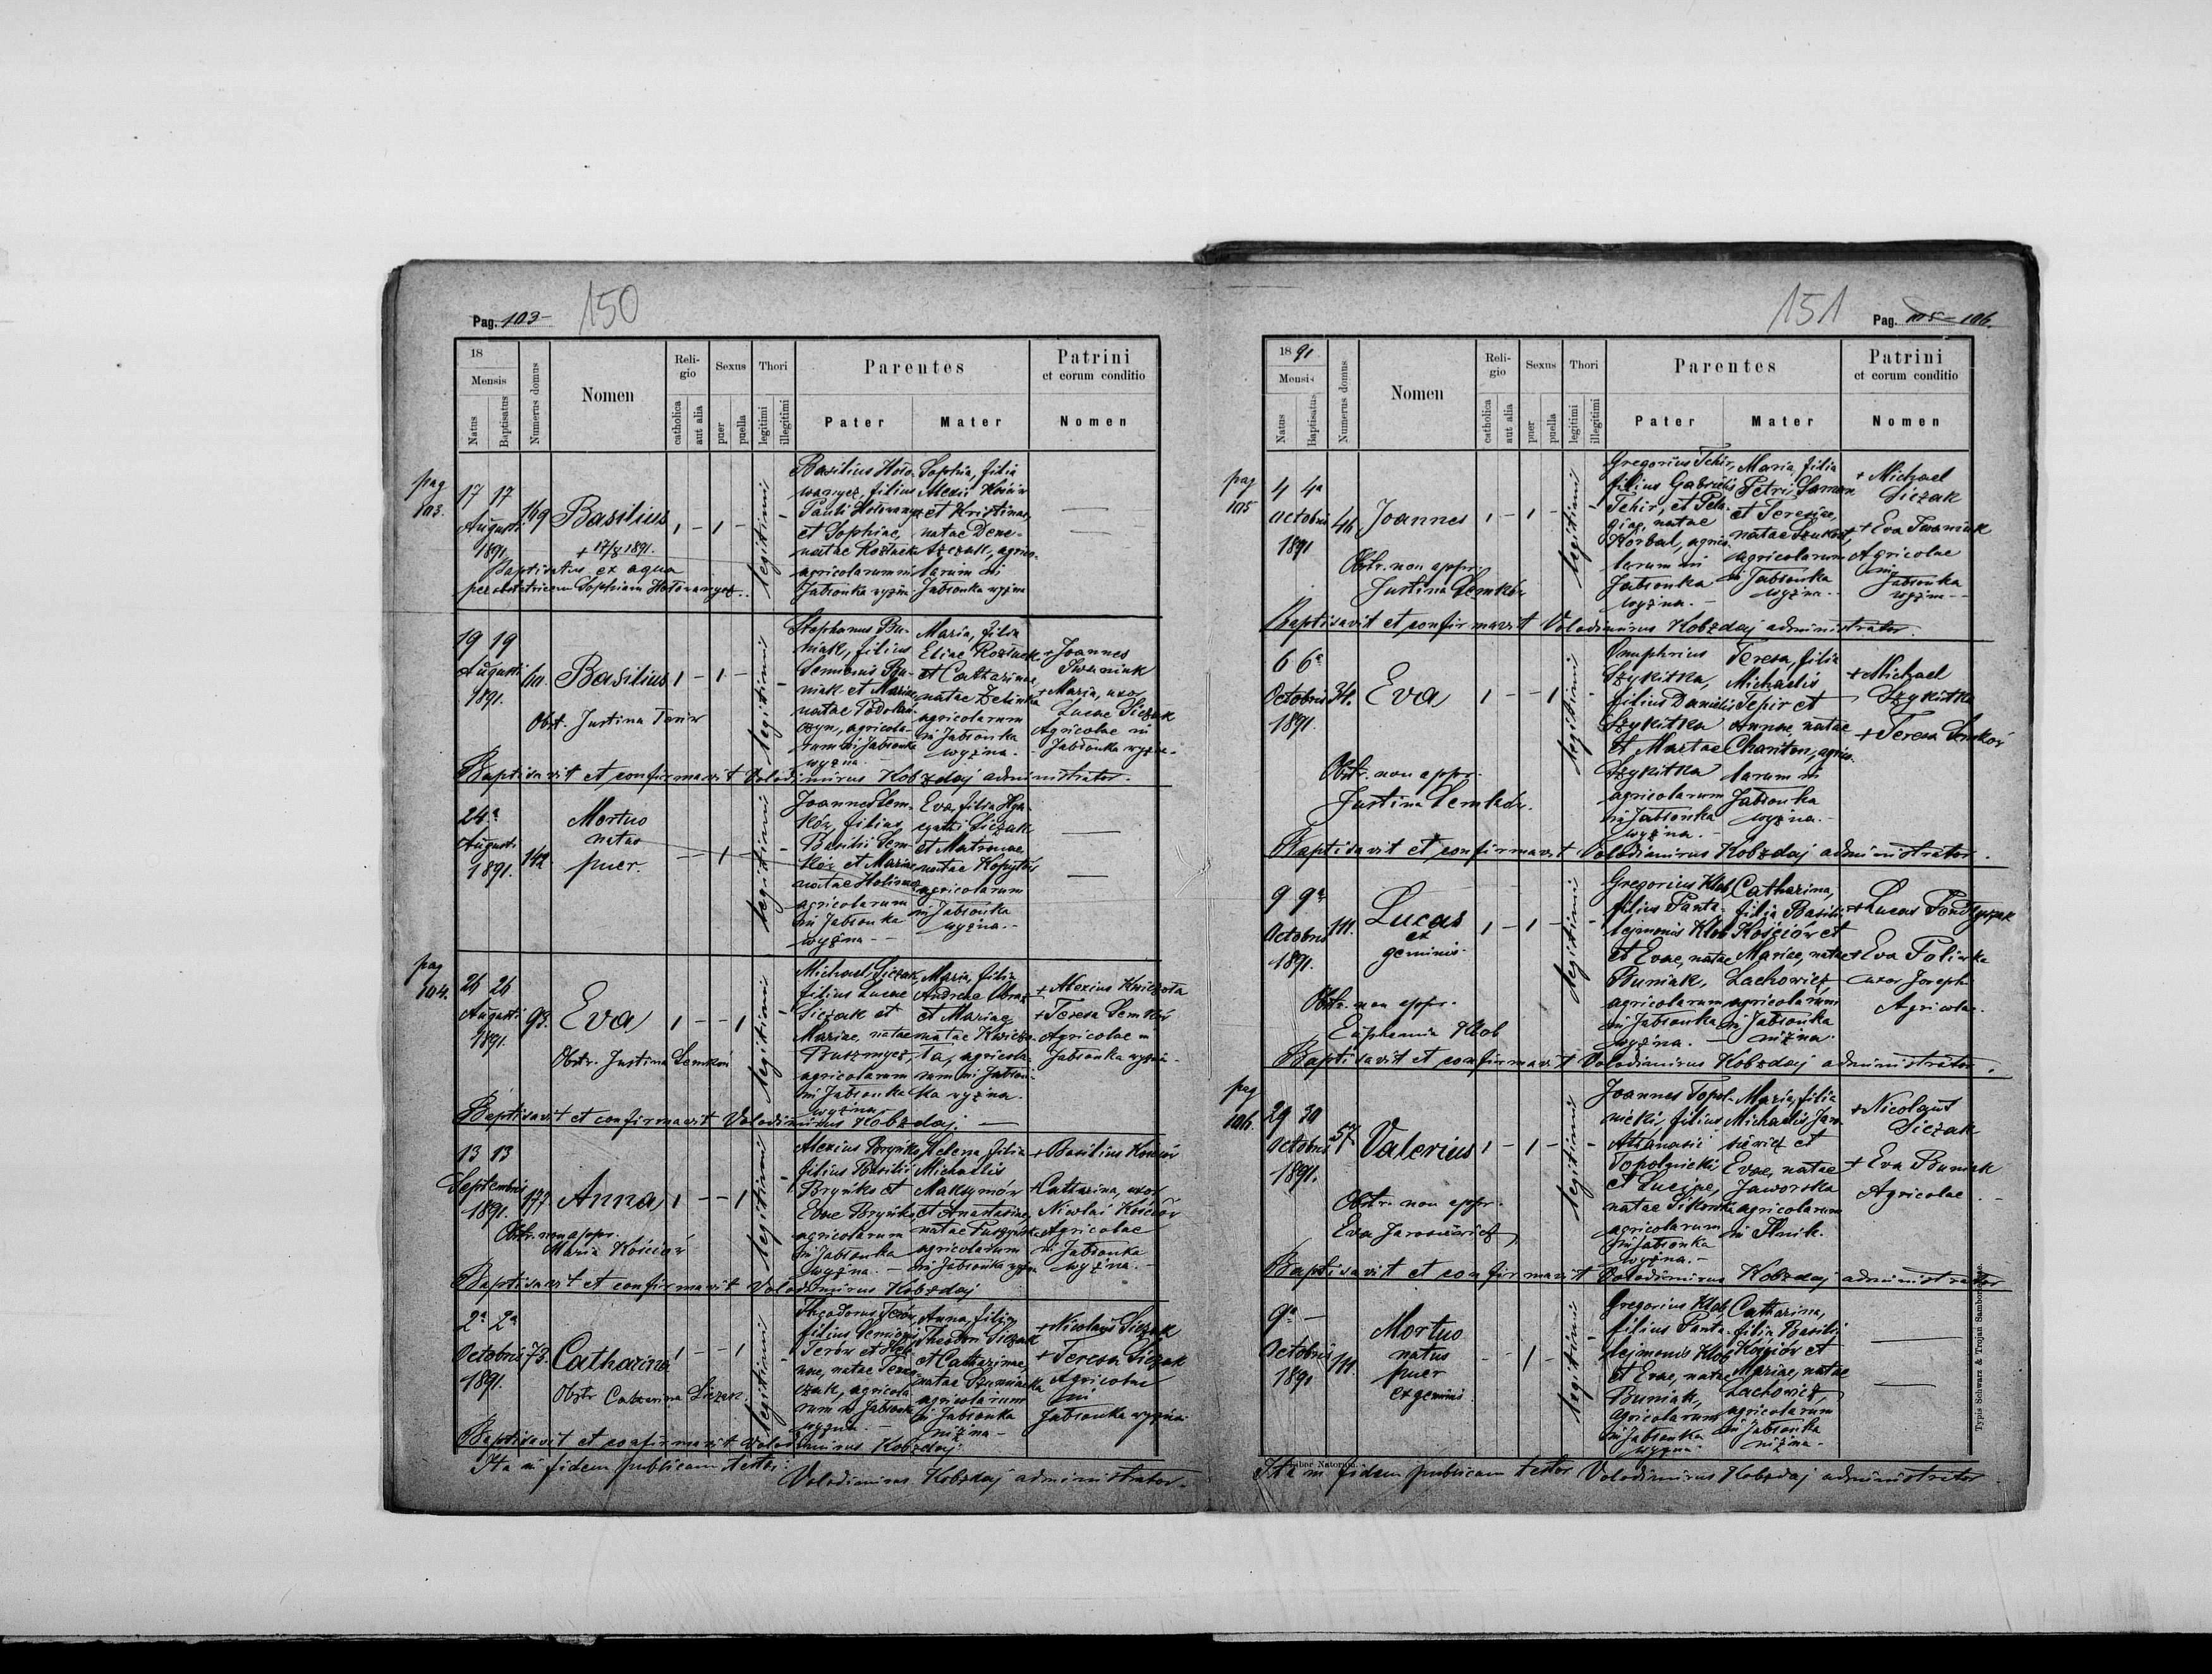 Pag. 103
150
18
Mensis
Natus
Baptisatus
Numerus domus
Nomen
Religio
catholica
aut alia
Sexus
puer
puella
Thori
legitimi
illegitimi
Parentes
Pater
Mater
Patrini
et eorum conditio
Nomen
pag
103.
17 17
Augusti
1891.
169
Basilius
1 - 1 -
legitimi
+ 17/8 1891.
Baptisatus ex aqua
per obstetricem Sophiam Hołowanycz.
Basilius Hoło-
wanycz, filius
Pauli Hołowanycz
et Sophiae,
natae Rozłucki
agricolarum in
Jabłonka wyżna
Sophia, filia
Alexii Kościów
et Kristinae,
natae Dene-
szczak, agrico-
larum in
Jabłonka wyżna
19 19
Augusti
1891.
60
Basilius
1 - 1 -
legitimi
Obst. Justina Terów
Stephanus Bu-
niak, filius
Simeonis Bu-
niak et Mariae
natae
agricola-
rum in Jabłonka
wyżna.
Maria, filia
Eliae Rozłucki
et Catharinae,
natae Zelinka
agricolarum
in Jabłonka
wyżna.
+ Joannes
Iwaniuk
+ Maria, uxor
Lucae Siczak
Agricolae in
Jabłonka wyżna.
Baptisavit et confirmavit Volodimirus Kobzdaj administrator.
24a
Augusti
1891.
142
Mortuo
natus
puer.
- - 1 -
legitimi
Joannes Sem-
ków, filius
Basilii Sem-
ków et Mariae
natae
agricolarum
in Jabłonka
wyżna
Eva, filia Hya-
cynthi Siczak
et Matronae
natae Kopytko
agricolarum
in Jabłonka
wyżna.
pag
104.
26 26
Augusti
1891.
93.
Eva
1 - - 1
legitimi
Obstr. Justina Semków
Michael Siczak,
filius Lucae
Siczak et
Mariae, natae
Buszmycz,
agricolarum
in Jabłonka
wyżna
Maria, filia
Andreae
et Mariae,
natae Kwiczo-
ta, agricola-
rum in Jabłon-
ka wyżna.
+ Alexius Kwiczota
+ Teresa Semków
Agricolae in
Jabłonka wyżna.
Baptisavit et confirmavit Volodimirus Kobzdaj.
13 13
Septembris
1891.
177
Anna
1 - - 1
legitimi
Obstr. non appr.
Maria Kościów
Alexius Bryńko,
filius Basilii
Bryńko et
Evae Bryńko
agricolarum
in Jabłonka
wyżna.
Helena, filia
Michaelis
Maksymów
et Anastasiae,
natae
agricolarum
in Jabłonka wyżna
+ Basilius Kościów
+ Catharina, uxor
Nicolai Kościów
Agricolae
in Jabłonka
wyżna.
Baptisavit et confirmavit Volodimirus Kobzdaj
2a 2a
Octobris
1891.
73.
Catharina
1 - - 1
legitimi
Obstr Catharina Siczak.
Theodorus Terów,
filius Simeonis
Terów et
natae
agricola-
rum in Jabłonka
wyżna
Anna, filia
Theodori Siczak
et Catharinae,
natae
agricolarum
in Jabłonka
niżna
+ Nicolaus Siczak
+ Teresa Siczak
Agricolae
in
Jabłonka wyżna.
Baptisavit et confirmavit Volodimirus Kobzdaj.
Ita in fidem publicam testor:
Volodimirus Kobzdaj administrator.
151
Pag. 105 - 106.
1891
Mensis
Natus
Baptisatus
Numerus domus
Nomen
Religio
catholica
aut alia
Sexus
puer
puella
Thori
legitimi
illegitimi
Parentes
Pater
Mater
Patrini
et eorum conditio
Nomen
pag
105
4 4a
Octobris
1891
46
Joannes
1 - 1 -
legitimi
Obstr. non appr.
Justina Semków
Gregorius Tehir,
filius Gabrielis
Tehir, et Pela-
giae, natae
Korbal, agrico-
larum in
Jabłonka
wyżna.
Maria, filia
Petri Saman
et Teresiae,
natae
agricolarum
in Jabłonka
wyżna.
+ Michael
Siczak
+ Eva Iwaniuk
Agricolae
in
Jabłonka
wyżna
Baptisavit et confirmavit Volodimirus Kobzdaj administrator.
6 6a
Octobris
1891.
34.
Eva
1 - - 1
legitimi
Obstr. non appr.
Justina Semków.
Onuphrius
Szykitka,
filius Danielis
Szykitka
et Martae
Szykitka
agricolarum
in Jabłonka
wyżna.
Teresa, filia
Michaelis
Tepir et
Annae, natae
Chariton, agrico-
larum in
Jabłonka
wyżna.
+ Michael
Szykitka
+ Teresa Semków
Baptisavit et confirmavit Volodimirus Kobzdaj administrator.
9 9a
Octobris
1891.
111.
Lucas
ex
geminis
1 - 1 -
legitimi
Obstr. non appr.
Euphemia Kłob
Gregorius Kłob,
filius Panta-
lejmonis Kłob
et Evae, natae
Buniak,
agricolarum
in Jabłonka
wyżna.
Catharina,
filia Basilii
Kościów et
Mariae, natae
Lachowicz,
agricolarum
in Jabłonka
niżna.
+ Lucas
+ Eva Poliwka
uxor Josephi
Agricolae.
Baptisavit et confirmavit Volodimirus Kobzdaj administrator.
pag
106.
29 30
Octobris
1891.
57
Valerius
1 - 1 -
legitimi
Obstr. non appr.
Eva Jarosiewicz
Joannes Topol-
nicki, filius
Athanasii
Topolnicki
et Luciae,
natae Sikorska
agricolarum
in Jabłonka
wyżna.
Maria, filia
Michaelis Jaro-
siewicz et
Evae, natae
Jaworska
agricolarum
in Ilnik.
+ Nicolaus
Siczak
+ Eva Buniak
Agricolae.
Baptisavit et confirmavit Volodimirus Kobzdaj administrator
9a -
Octobris
1891
111.
Mortuo
natus
puer
ex geminis
- - 1 -
legitimi
Gregorius Kłob,
filius Panta-
lejmonis Kłob
et Evae, natae
Buniak,
agricolarum
in Jabłonka
wyżna.
Catharina,
filia Basilii
Kościów et
Mariae, natae
Lachowicz,
agricolarum
in Jabłonka
niżna.
Liber Natorum.
Ita in fidem publicam testor Volodimirus Kobzdaj administrator.
Typis Schwarz & Trojan Samboriae.